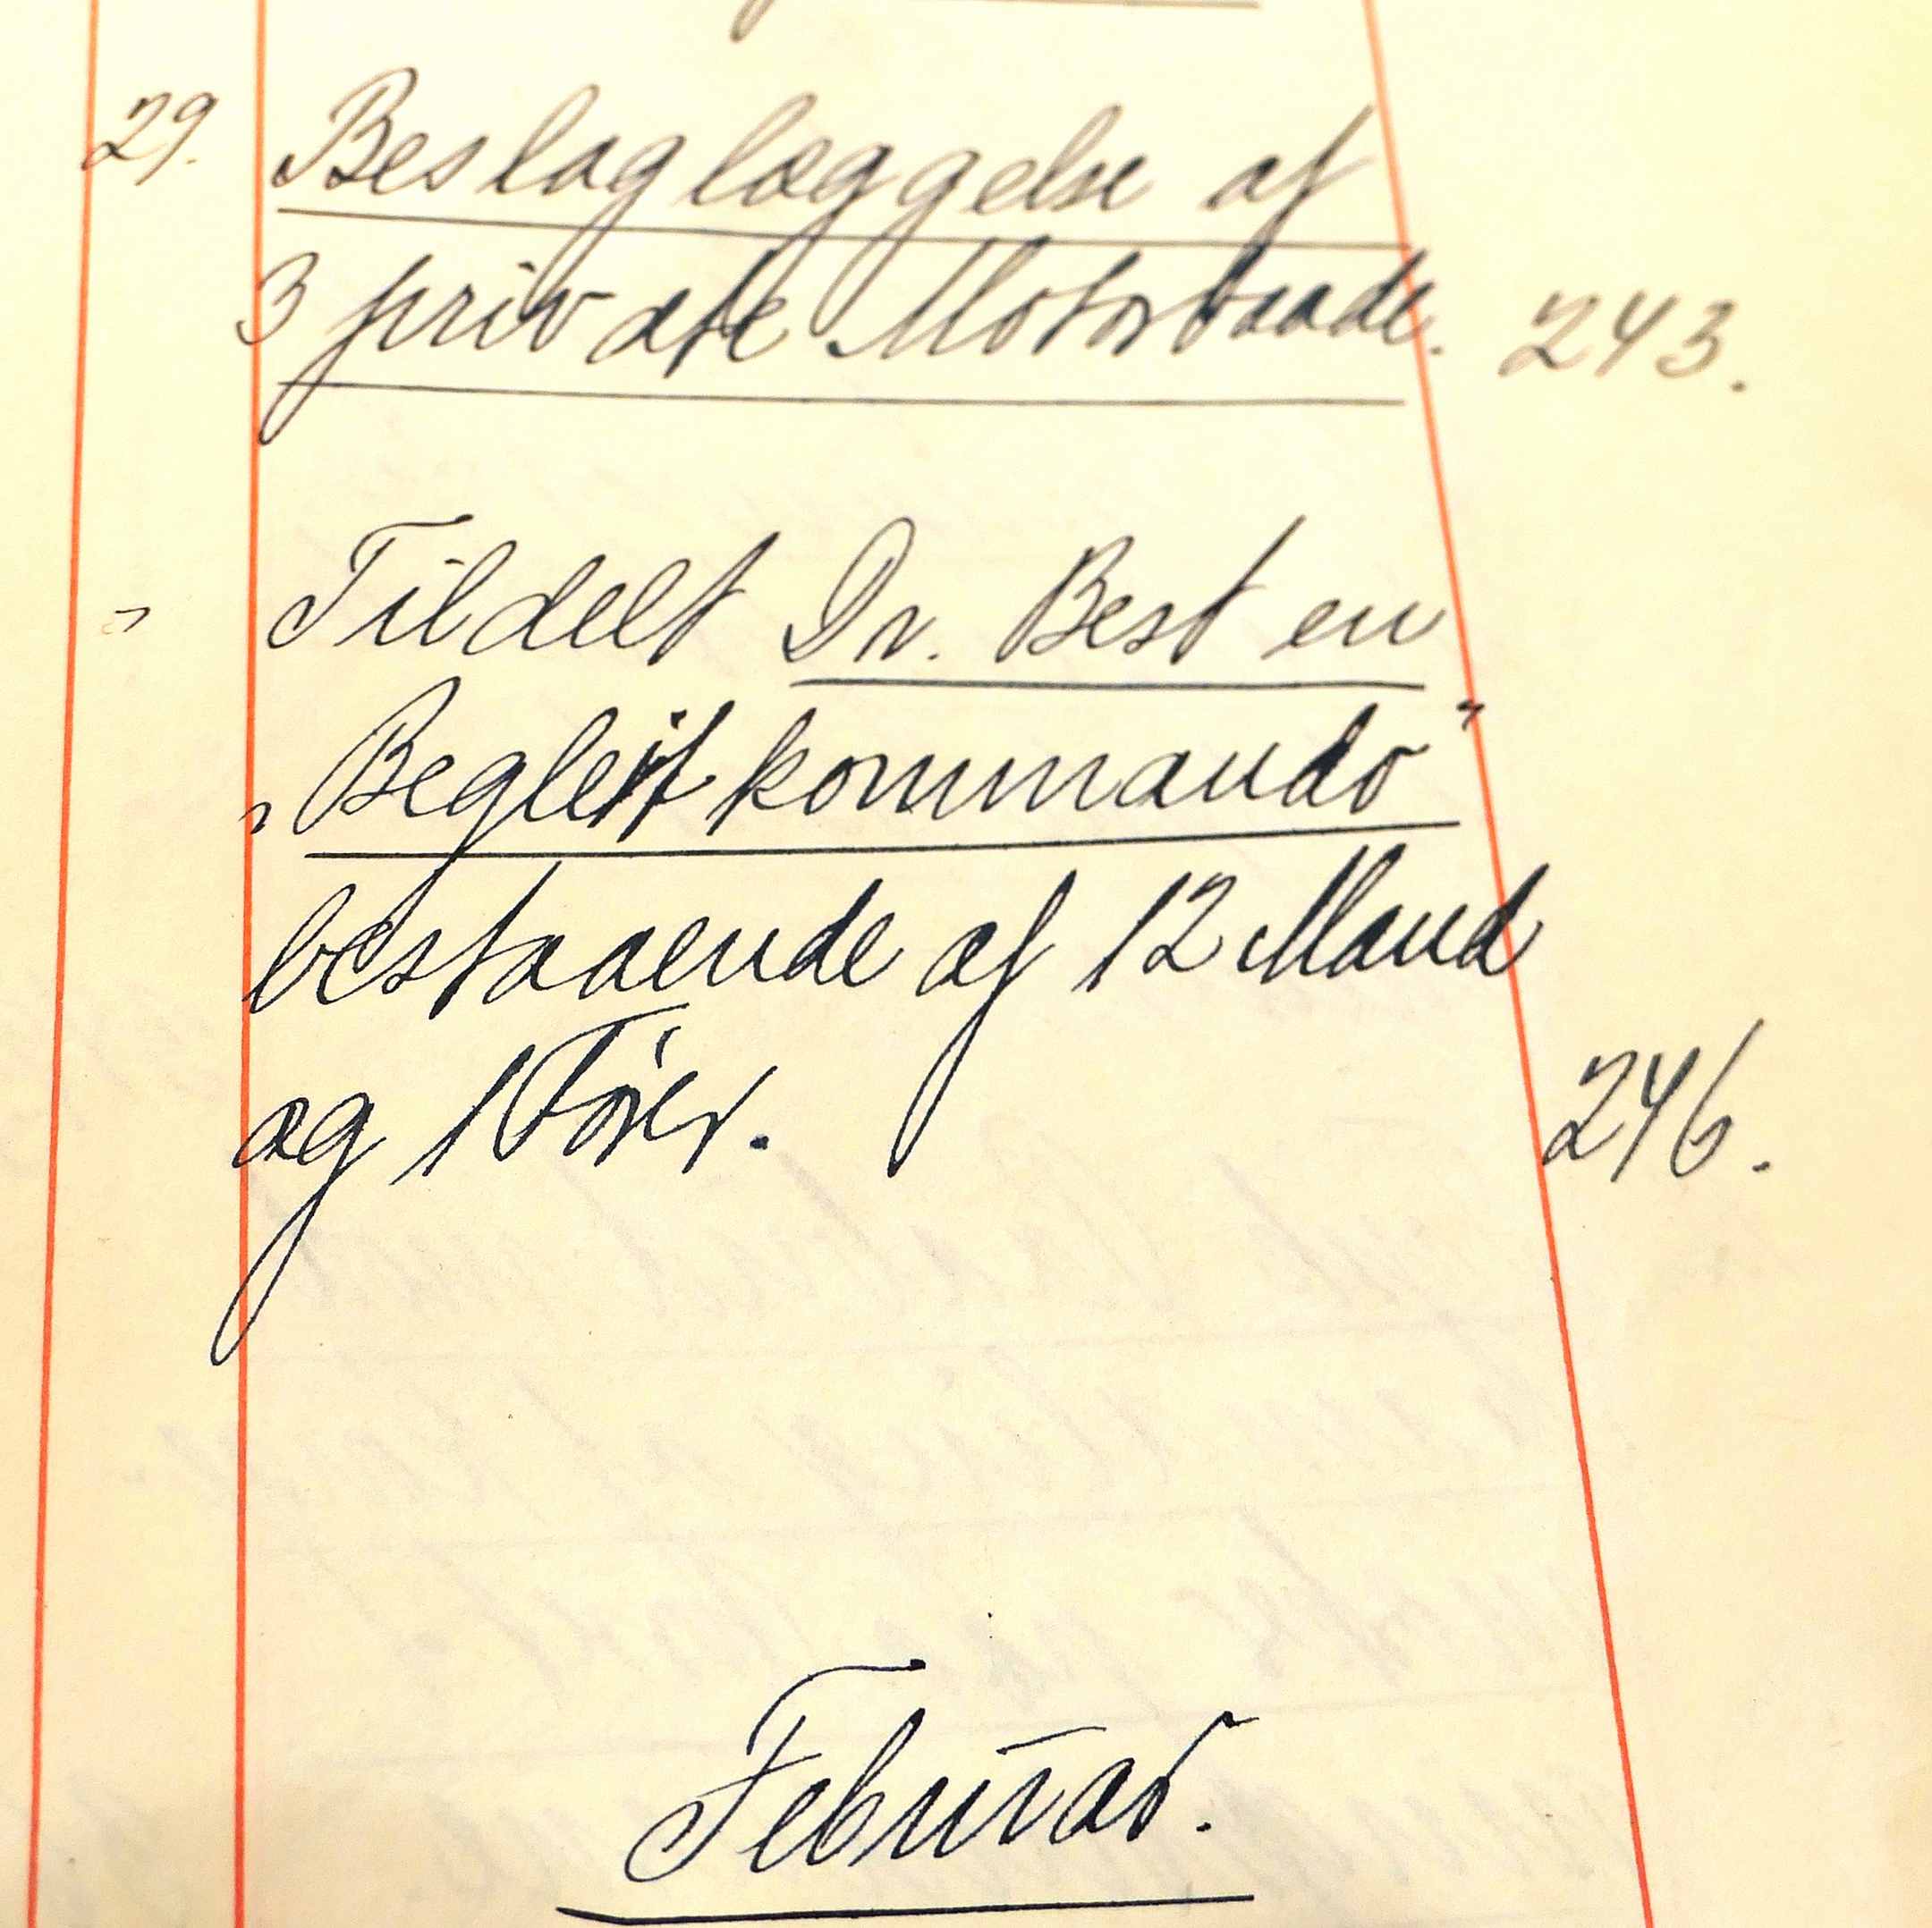 29. Beslaglæggelse af
3 private Motorbaade. 243.
" Tildelt Dr. Best en
„Begleitkommando"
bestaaende af 12 Mand
og 1 Fører. 246.
Februar.